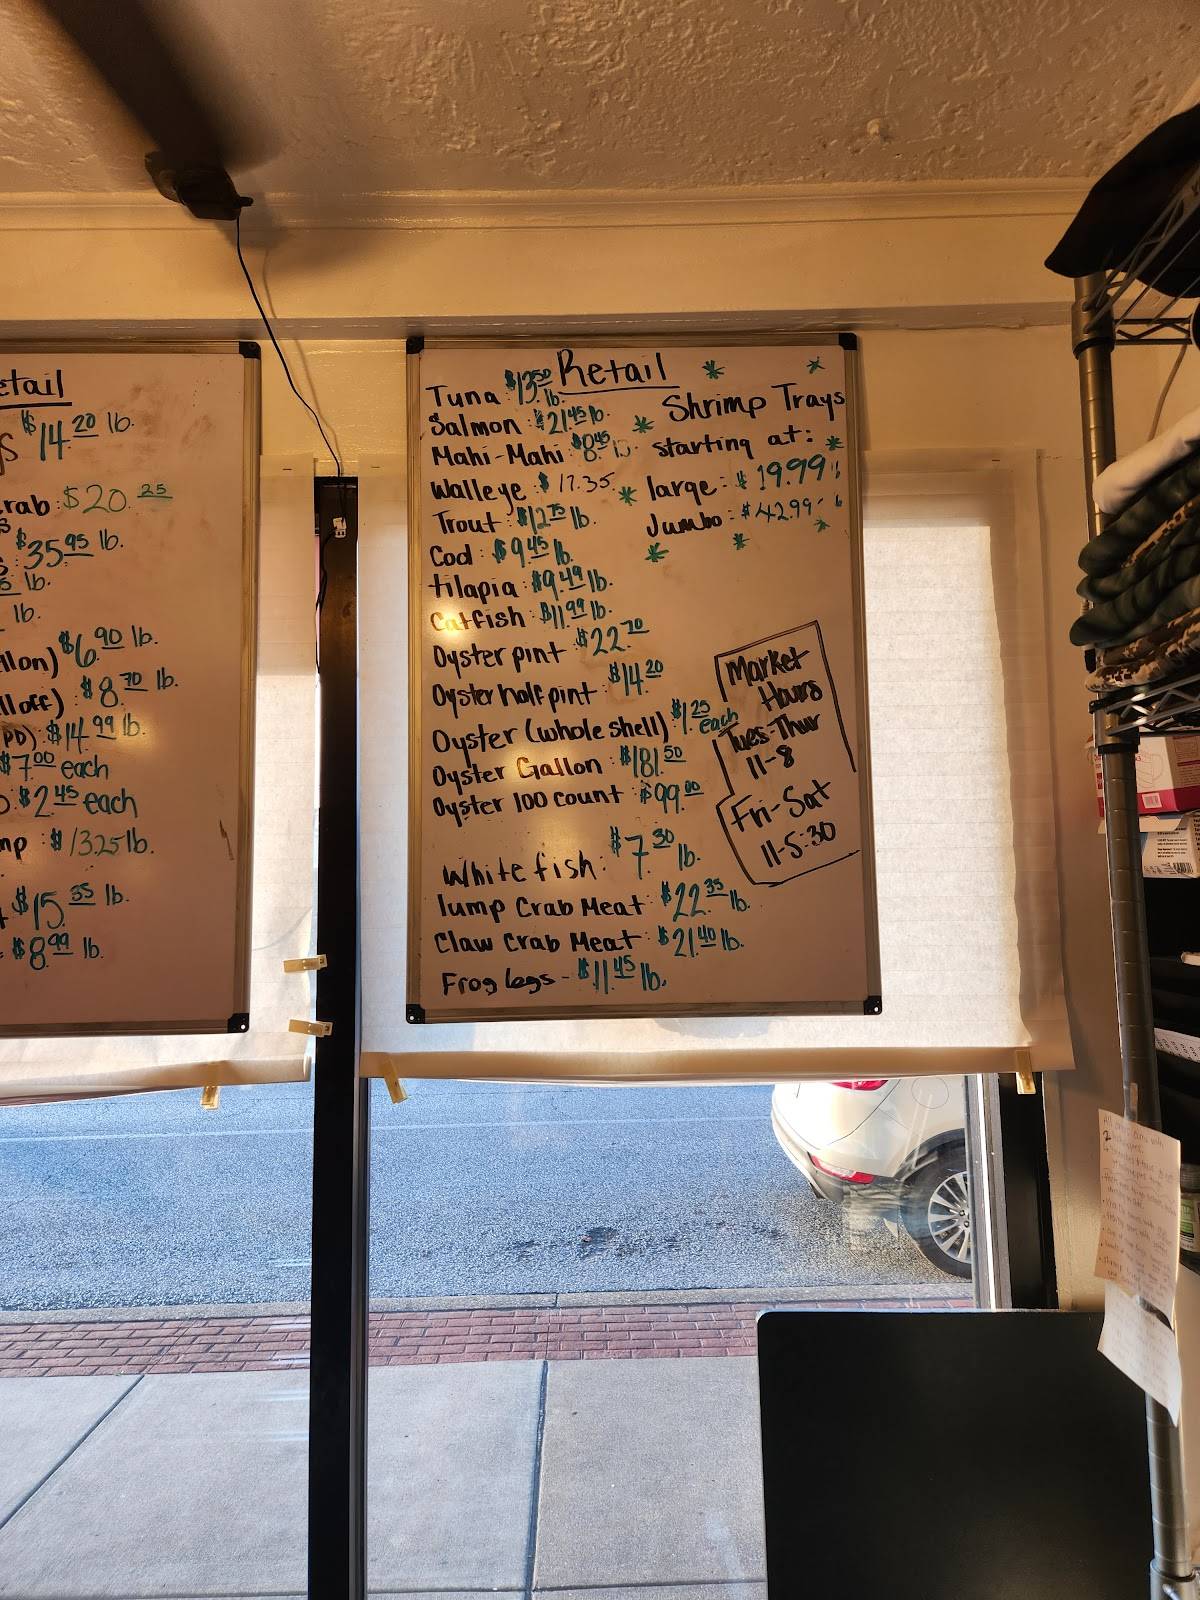 etail
$14.20 lb.
rab: $20.25
$35.95 lb.
lb.
lb.
llon) $6.90 lb.
ll off) : $8.70 lb.
PD): $14.99 lb.
$7.00 each
$2.45 each
mp : $13.25 lb.
$15.35 lb.
: $8.99 lb.
Retail
Tuna : $13.50 lb.
Salmon : $21.45 lb.
Mahi-Mahi : $8.45
Walleye : $17.35
Trout : $12.75 lb.
Cod : $9.45 lb.
tilapia : $9.49 lb.
Catfish : $11.99 lb.
Oyster pint : $22.70
Oyster half pint : $14.20
Oyster (whole shell) : $1.25 each
Oyster Gallon : $181.50
Oyster 100 count : $99.00
White fish : $7.30 lb.
lump Crab Meat : $22.35 lb.
Claw Crab Meat : $21.40 lb.
Frog legs - $11.45 lb.
Shrimp Trays
starting at:
large : $19.99
Jumbo : $42.99
Market
Hours
Tues-Thur
11-8
Fri-Sat
11-5:30